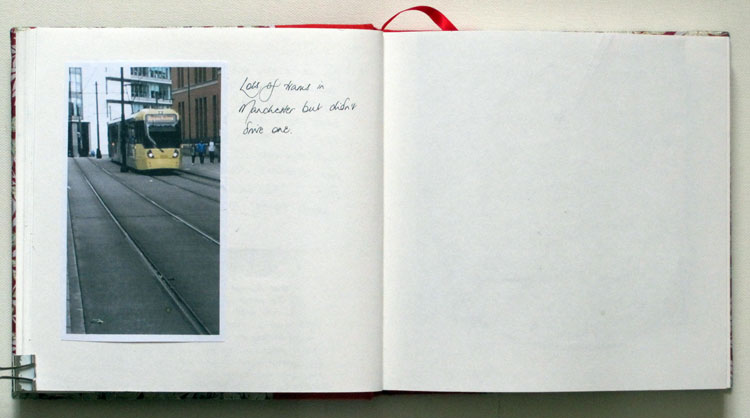 Lots of trams in
Manchester but didn't
drive one.